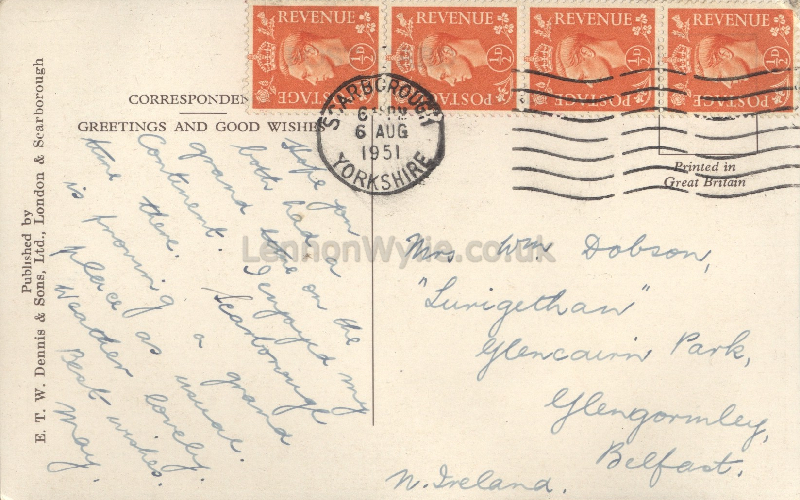 REVENUE
½D
POSTAGE
REVENUE
½D
POSTAGE
REVENUE
½D
POSTAGE
REVENUE
½D
POSTAGE
SCARBOROUGH
6 PM
6 AUG
1951
YORKSHIRE
CORRESPONDEN
GREETINGS AND GOOD WISHES
Printed in
Great Britain
Published by
E. T. W. Dennis & Sons, Ltd., London & Scarborough
Hope you
both had a
grand time on the
Continent. I enjoyed my
time there. Scarborough
is proving a grand
place as usual.
Weather lovely.
Best wishes.
May.
Mrs. Wm. Dobson,
"Lurigethan"
Glencairn Park,
Glengormley,
Belfast.
N. Ireland.
LennonWylie.co.uk